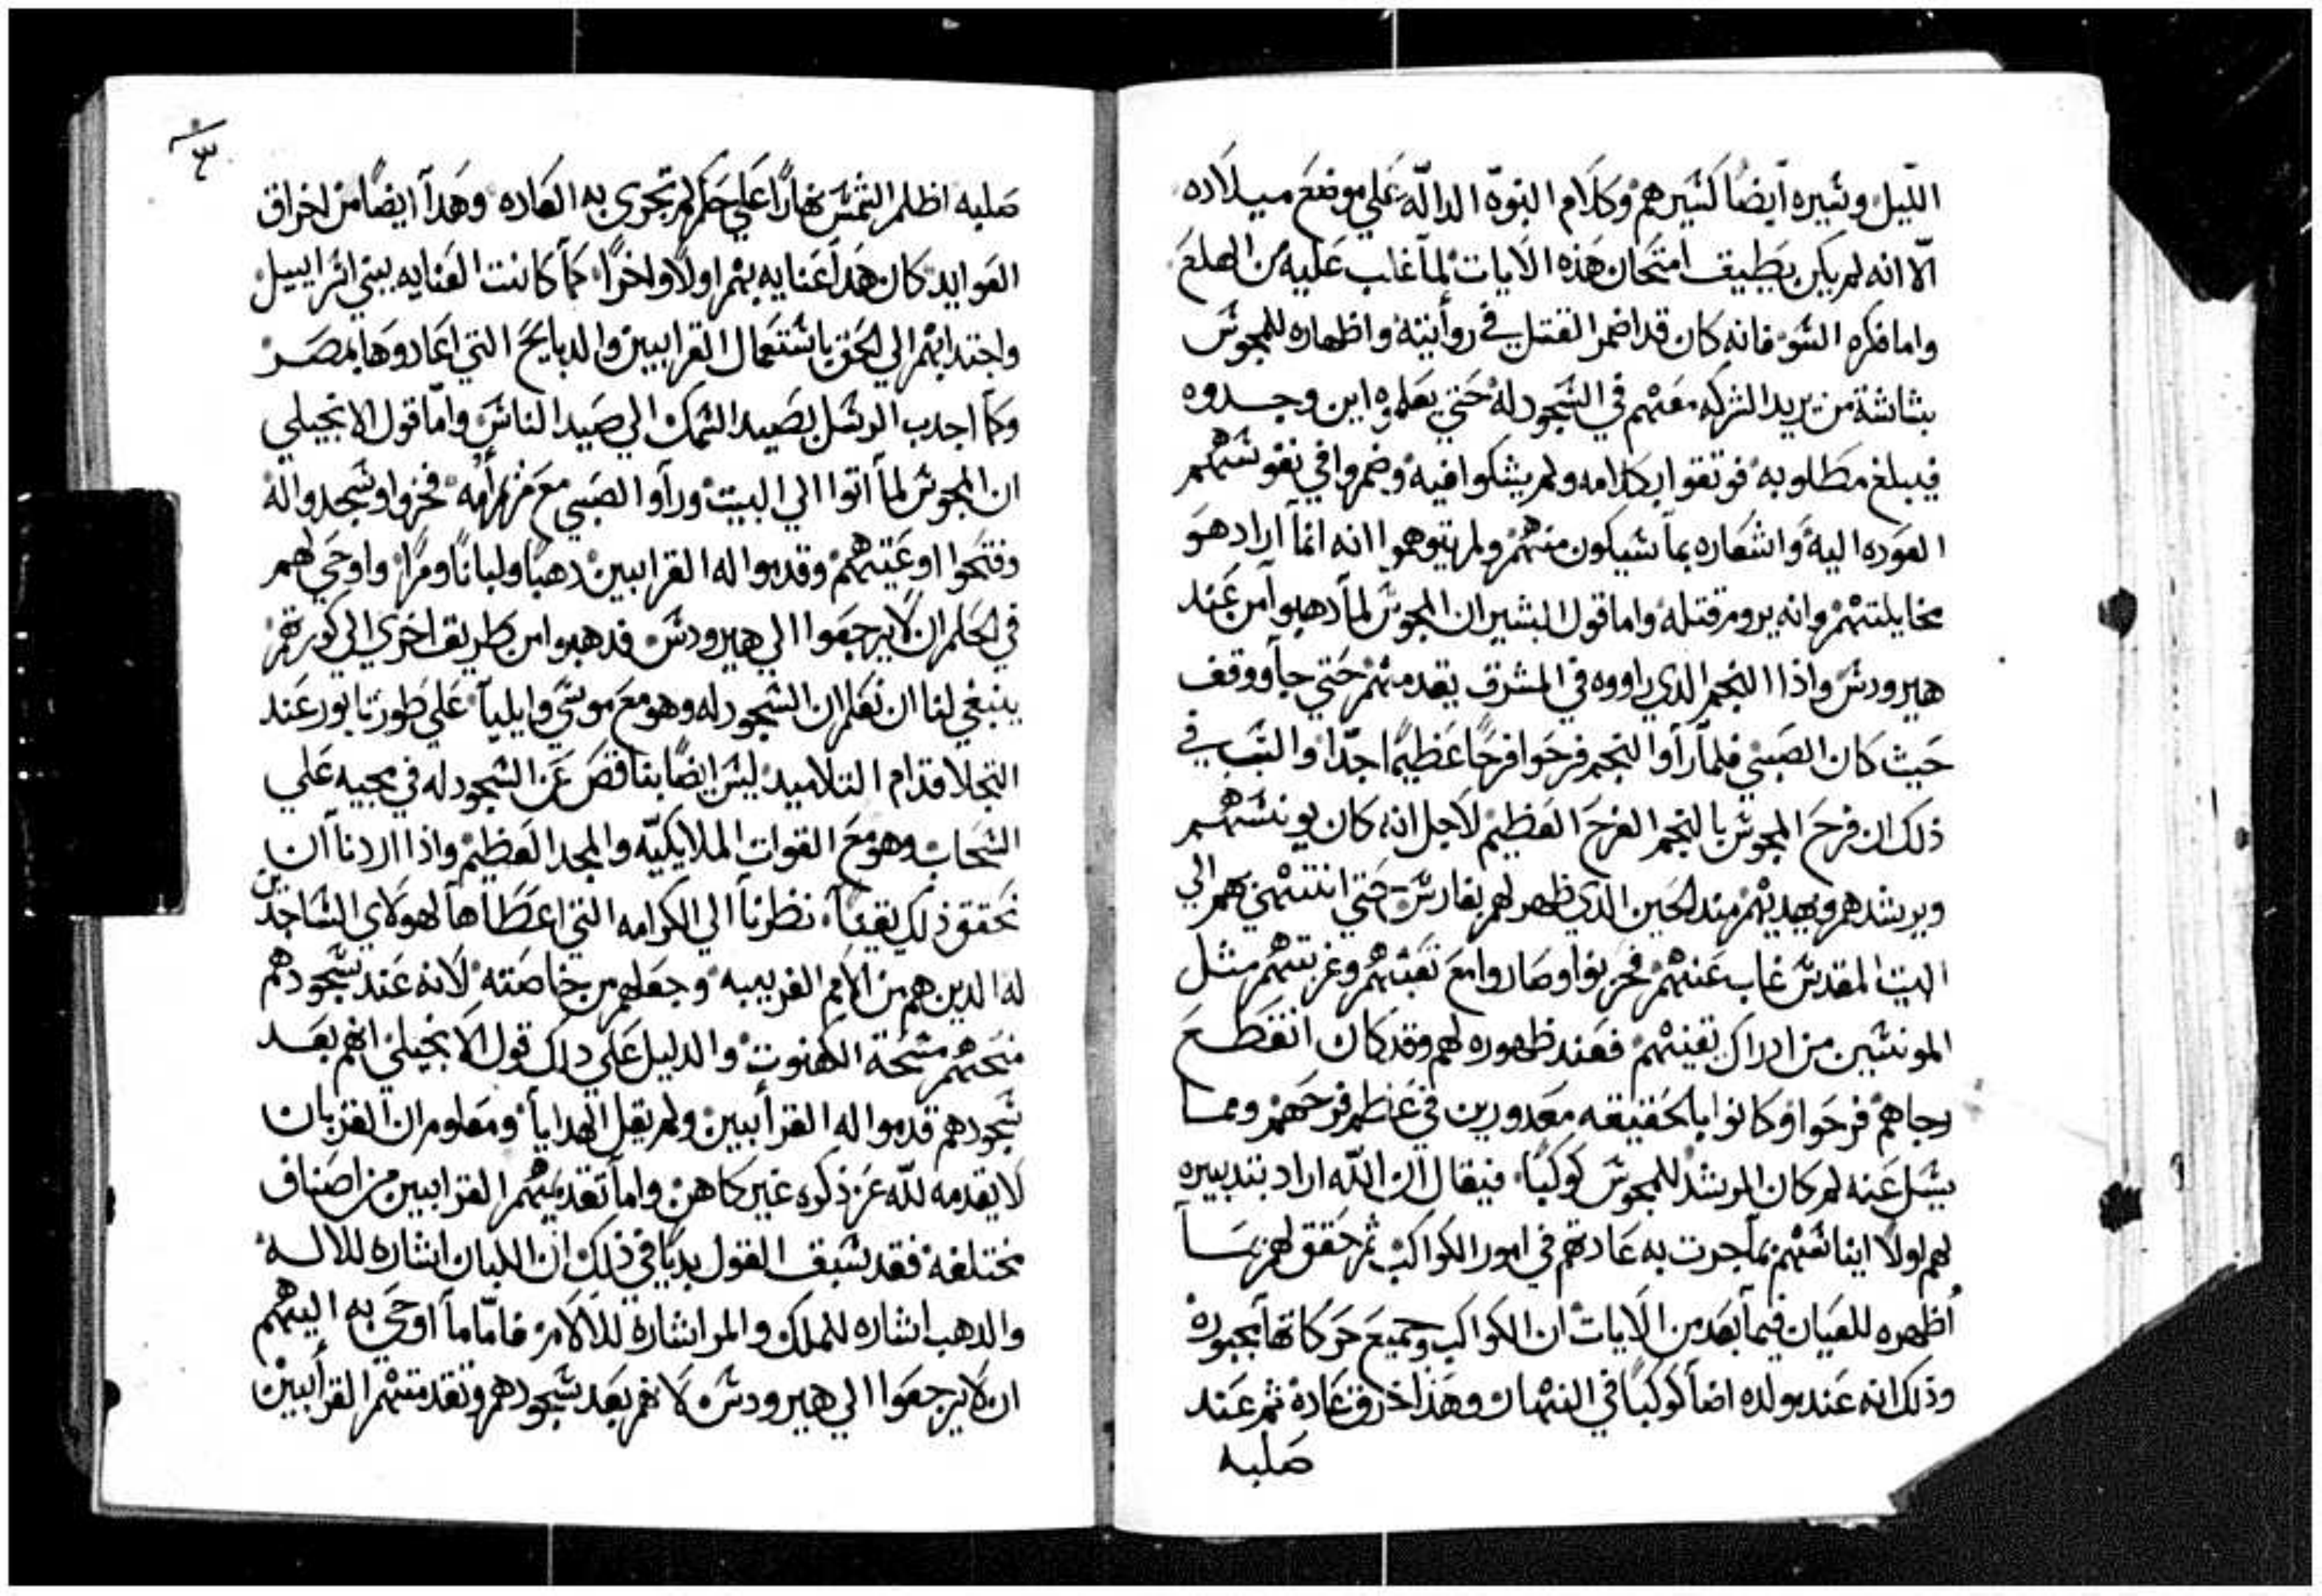 الليل وسيره أيضًا كسيرهم وكلام النبوّة الدالّة على موضع ميلاده
الّا انه لم يكن يطيق امتحان هذه الايات لمآ غلب عليه من الهلع
واما فكره السو فانه كان قد اضمر القتل في روأيته واظهاره للمجوس
بشاشة من يريد الشركه معهم في السجود له حتي يعلموه اين وجدوه
فيبلغ مطلوبه فوثقوا بكلامه ولم يشكوا فيه وضمروا في نفوسهم
العوده اليه واشعاره بمآ سيكون منهم ولم يتوهموا انه انمآ اراد هو
مخايلتهم وانه يروم قتله واما قول البشير ان المجوس لمآ دهبوا من عند
هيرودس واذا النجم الدي راووه في المشرق يقدمهم حتي جآ ووقف
حيث كان الصبي فلمآ رأوا النجم فرحوا فرحًا عظيمًا جدّا والسبب في
ذلك ان فرح المجوس بالنجم الفرح العظيم لاجل انه كان يونسهم
ويرشدهم ويهديهم مند الحين الدي ظهر لهم بفارس حتي انتهي بهم الي
البيت المقدس غاب عنهم فحزنوا وصاروا مع تعبهم وغربتهم مثل
المونسين من ادراك بغيتهم فعند ظهوره لهم وقد كان انقطع
رجاهم فرحوا وكانوا بالحقيقه معدورين في عظم فرحهم ومما
يسل عنه لم كان المرشد للمجوس كوكبًا فيقال ان اللّه اراد بتدبيره
لهم اولًا ايناسهم بمآ جرت به عادتهم في امور الكواكب ثم حقق لهم بمآ
أظهره للعيان فيمآ بعد من الايات ان الكواكب وجميع حركاتهآ مجبوره
وذلك انه عند مولده اضآ كوكبًا في النهار وهذا خارق عادة ثم عند
صلبه
٣
صلبه اظلم الشمس نهارًا علي حكم لم تجري به العاده وهدآ ايضًا من اخراق
العوايد كان هدآ عنايه بهم اولًا واخرًا كمآ كانت العنايه ببني اسراييل
واجتدابهم الي الحق باستعمال القرابين والدبايح التي اعتادوها بمصر
وكمآ اجدب الرسل بصيد السمك الي صيد الناس وامّا قول الانجيلي
ان المجوس لمآ اتوا الي البيت ورآوا الصبي مع مريم أمه فخروا وسجدوا له
وفتحوا اوعيتهم وقدموا له القرابين دهبًا ولبانًا ومرًا واوحي لهم
في الحلم ان لا يرجعوا الي هيرودس فدهبوا من طريق اخري الي كورتهم
ينبغي لنا ان نعلم ان السجود له وهو مع موسي وايليآ علي طور تابور عند
التجلا قدام التلاميد ليس ايضًا بناقص عن السجود له في مجيه علي
السحاب وهو مع القوات الملايكيّه والمجد العظيم واذا اردنآ ان
نحقق ذلك يقينآ نظرنآ الي الكرامه التي اعطآهآ لهولاي الساجدين
له الدين هم من الامم الغريبه وجعلهم من خاصته لانه عند سجودهم
منحهم مسحة الكهنوت والدليل علي دلك قول الانجيلي انهم بعد
سجودهم قدموا له القرأبين ولم يقل الهدايآ ومعلوم ان القربان
لا يقدمه للّه عز ذكره غير كاهن وامآ تقديمهم القرابين من اصناف
مختلفه فقد سبق القول بديًا في ذلك ان اللبان اشاره للاله
والدهب اشاره للملك والمر اشارة للالام فامّا مآ اوحي به اليهم
ان لا يرجعوا الي هيرودس لانهم بعد سجودهم وتقدمتهم القرأبين